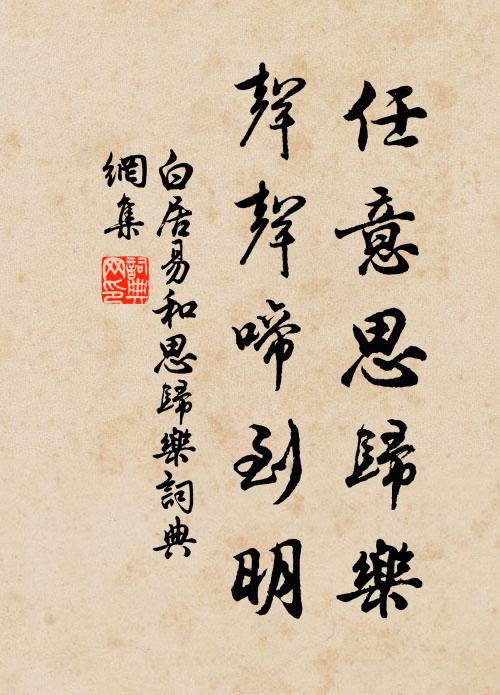 任意思歸樂
聲聲啼到明
白居易和思歸樂詞典
網集
詞典
网印